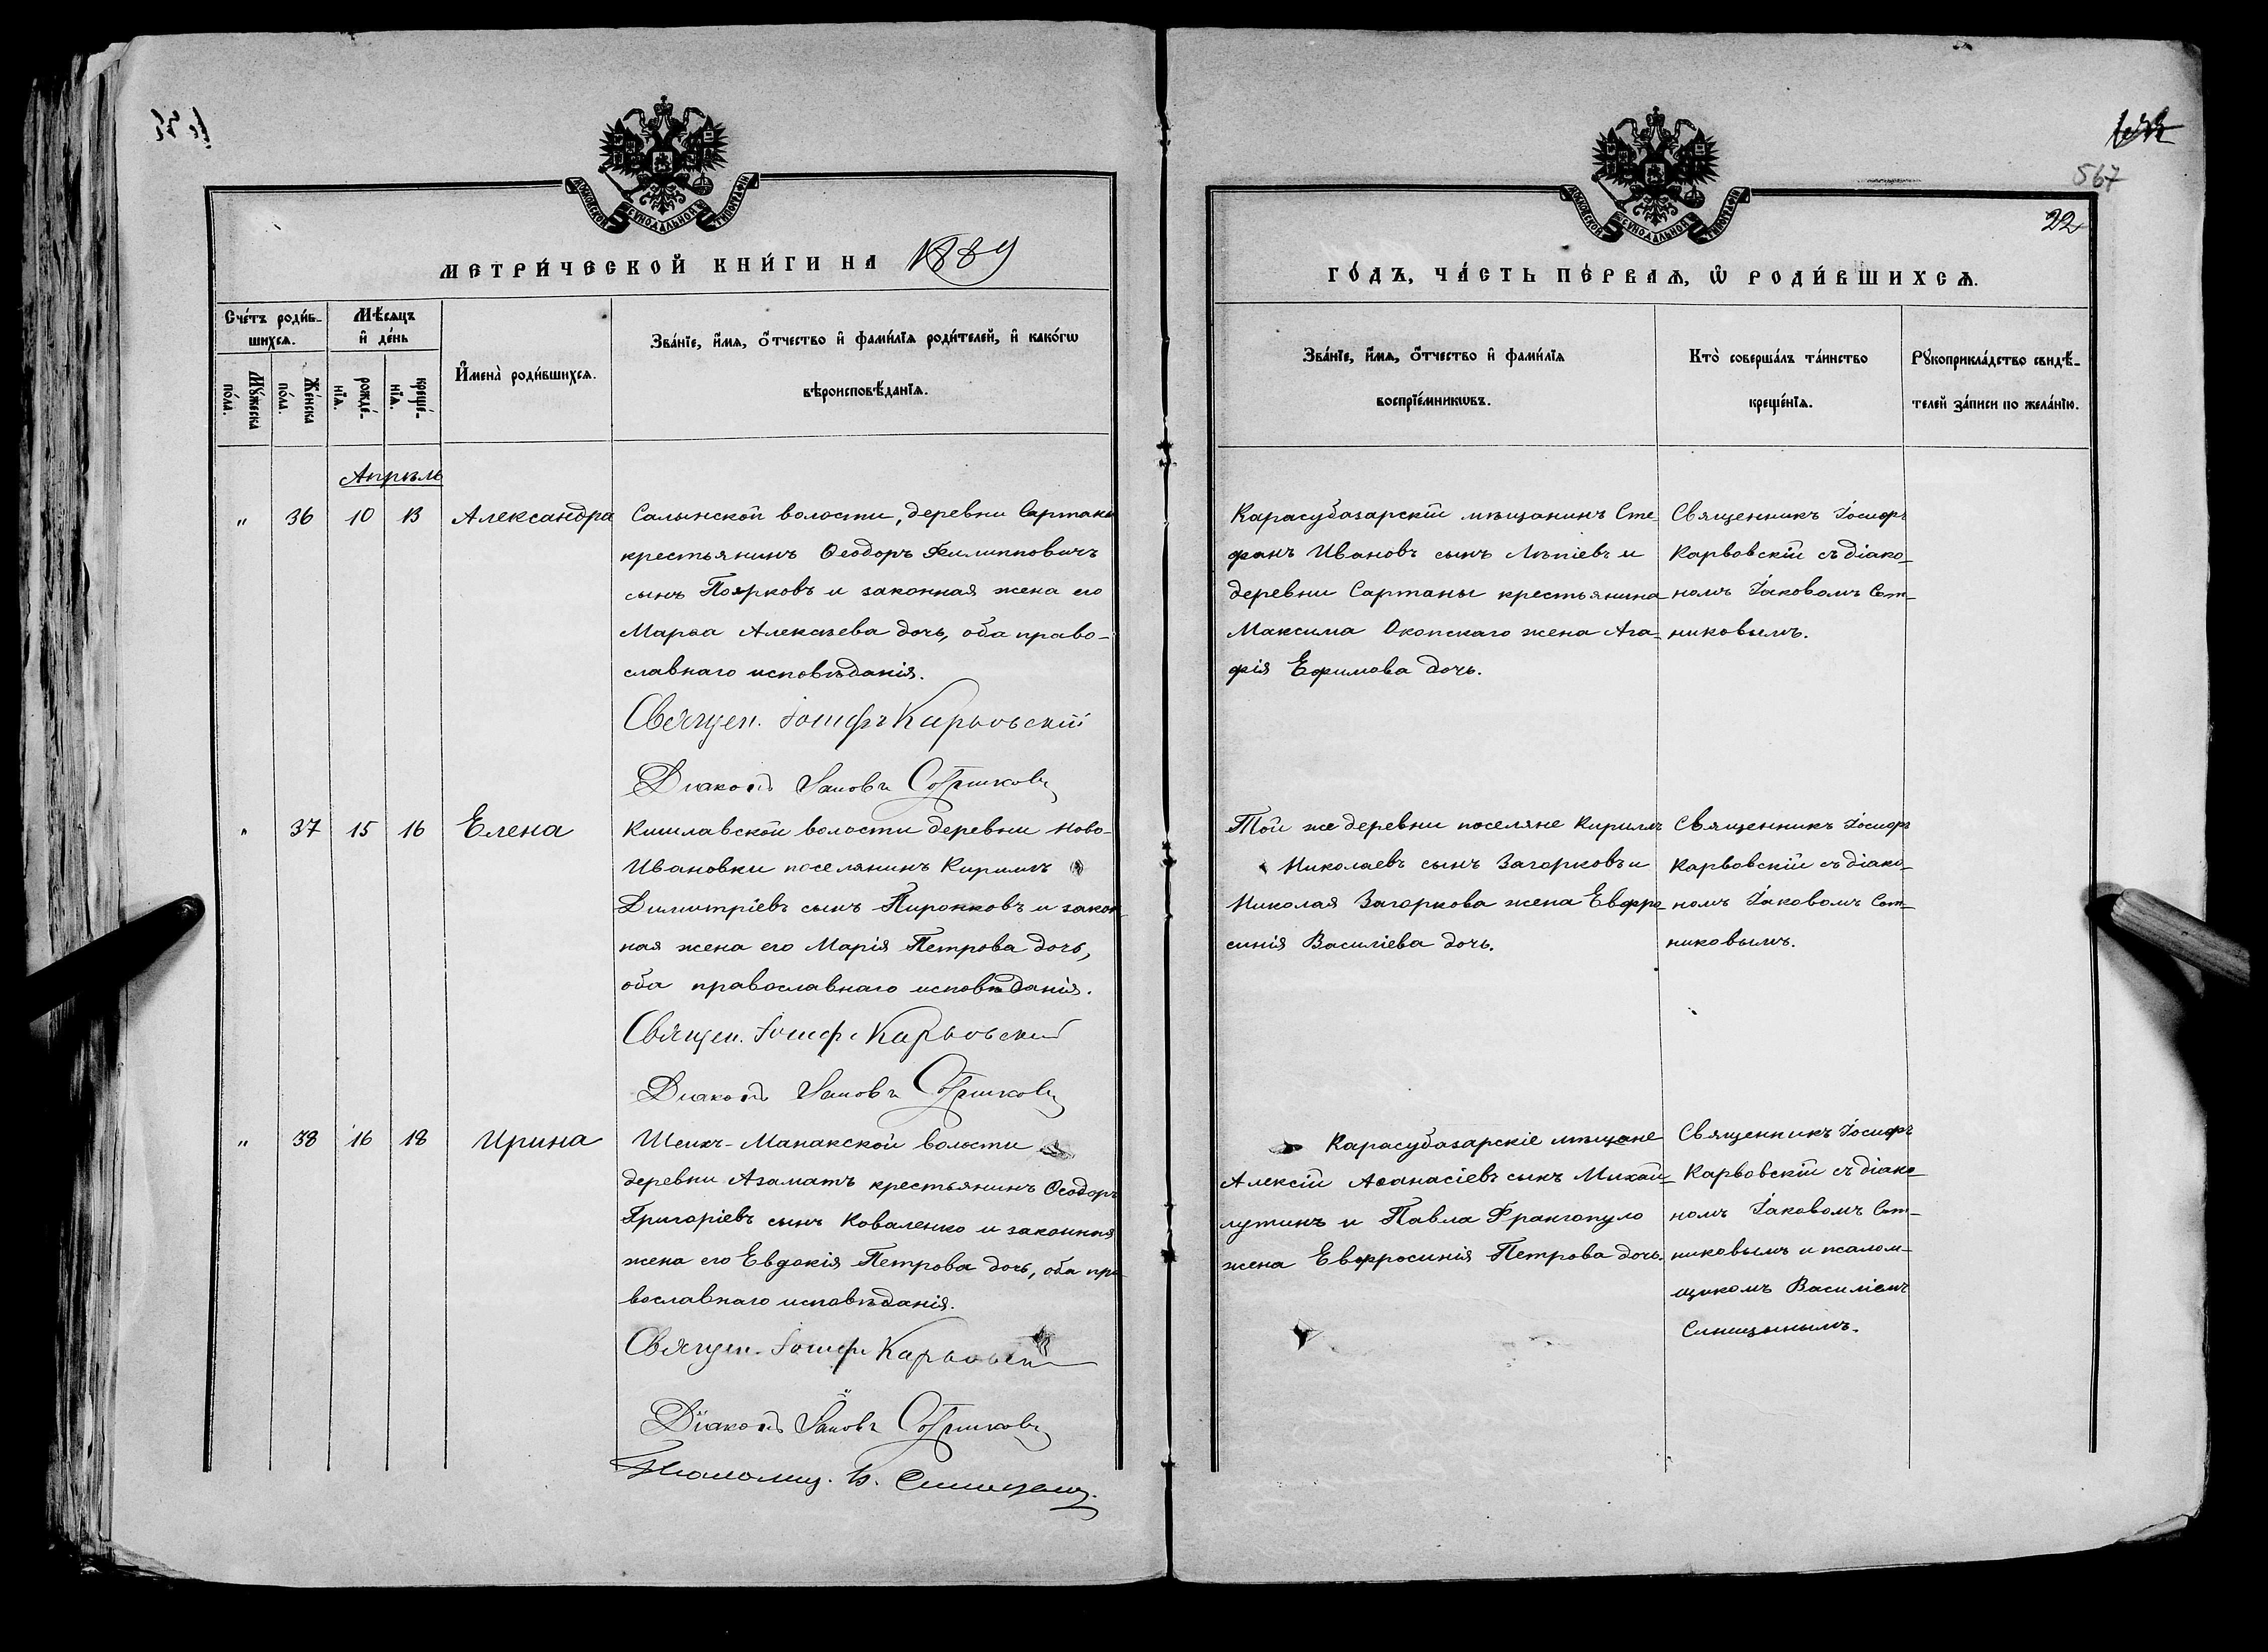 567
22
МОСКОВСКОЙ СѴНОДАЛЬНОЙ ТИПОГРАФІИ
МОСКОВСКОЙ СѴНОДАЛЬНОЙ ТИПОГРАФІИ
МЕТРИ́ЧЕСКОЙ КНИ́ГИ НА 1889
ГО́ДЪ, ЧА́СТЬ ПЕ́РВАѦ, Ѡ҆ РОДИ́ВШИХСѦ.
Сче́тъ роди́в-
шихсѧ.
Мꙋ́жеска по́ла.
Же́нска по́ла.
Мѣ́сѧцъ
и҆ де́нь
рожде́-
нїѧ.
креще́-
нїѧ.
И҆мена̀ роди́вшихсѧ.
Зва́нїе, и҆́мѧ, ѻ҆́тчество и҆ фами́лїѧ роди́телей, и҆ како́гѡ
вѣроисповѣ́данїѧ.
Зва́нїе, и҆́мѧ, ѻ҆́тчество и҆ фами́лїѧ
воспрїе́мникѡвъ.
Кто̀ соверша́лъ та́инство
креще́нїѧ.
Рꙋкоприкла́дство свидѣ́-
телей за́писи по жела́нїю.
Апрѣль
" 36 10 13 Александра
Салынской волости, деревни Сартаны
крестьянинъ Ѳеодоръ Филипповичъ
сынъ Поярковъ и законная жена его
Марѳа Алексѣева дочь, оба право-
славнаго исповѣданія.
Священ. Іосифъ Карвовскій
Діаконъ Іаковъ Сотниковъ
Карасубазарскій мѣщанинъ Сте-
фанъ Ивановъ сынъ Лѣпіевъ и
деревни Сартаны крестьянина
Максима Окопскаго жена Ага-
фія Ефимова дочь.
Священникъ Іосифъ
Карвовскій съ діако-
номъ Іаковомъ Сот-
никовымъ.
" 37 15 16 Елена
Кишлавской волости деревни Ново-
Ивановки поселянинъ Кириллъ
Димитріевъ сынъ Пиронковъ и закон
ная жена его Марія Петрова дочь,
оба православнаго исповѣданія.
Священ. Іосифъ Карвовскій
Діаконъ Іаковъ Сотниковъ
Той же деревни поселяне Кириллъ
Николаевъ сынъ Загорковъ и
Николая Загоркова жена Евфро-
синія Василіева дочь.
Священникъ Іосифъ
Карвовскій съ діако-
номъ Іаковомъ Сот-
никовымъ.
" 38 16 18 Ирина
Шеихъ-Манакской волости
деревни Азаматъ крестьянинъ Ѳеодоръ
Григоріевъ сынъ Коваленко и законная
жена его Евдокія Петрова дочь, оба пра-
вославнаго исповѣданія.
Священ. Іосифъ Карвовскій
Діаконъ Іаковъ Сотниковъ
Псаломщ. В. Синицынъ.
Карасубазарскіе мѣщане
Алексій Аѳанасіевъ сынъ Михай-
лутинъ и Павла Франгопуло
жена Евфросинія Петрова дочь.
Священникъ Іосифъ
Карвовскій съ діако-
номъ Іаковомъ Сот-
никовымъ и псалом-
щикомъ Василіемъ
Синицынымъ.